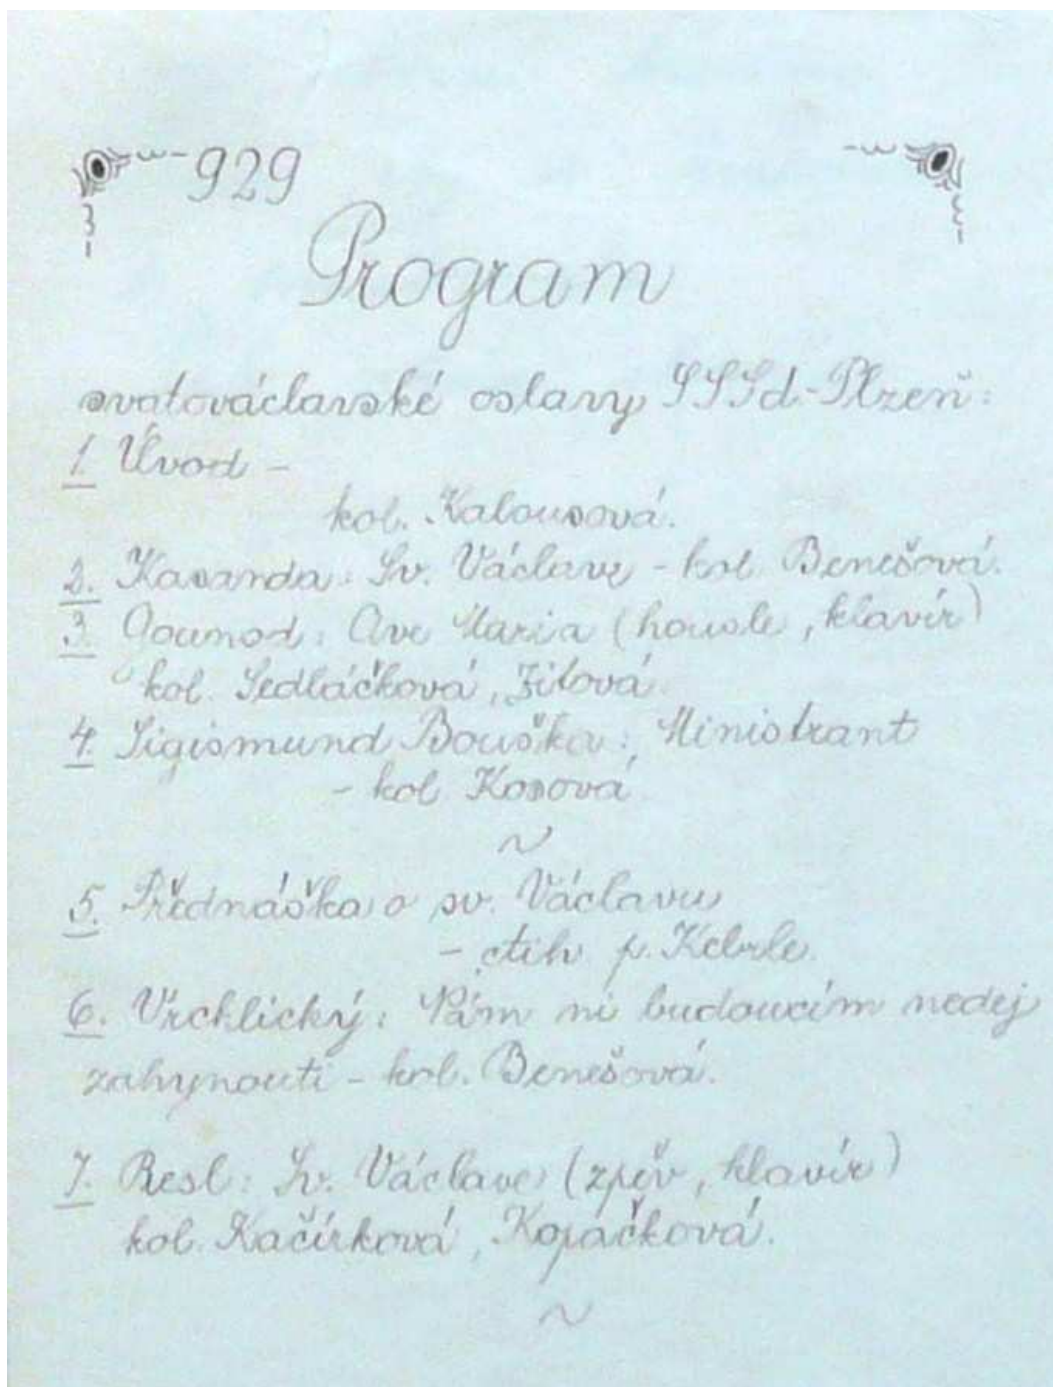 929
Program
svatováclavské oslavy SSSd.-Plzeň:
1. Úvod -
kol. Kalousová.
2. Kasanda: Sv. Václave - kol. Benešová.
3. Gounod: Ave Maria (housle, klavír)
kol. Sedláčková, Žitová
4. Sigismund Bouška: Ministrant
- kol. Kosová
~
5. Přednáška o sv. Václavu
- ctih. p. Kebrle.
6. Vrchlický: Nám ni budoucím nedej
zahynouti - kol. Benešová.
7. Resl: Sv. Václave (zpěv, klavír)
kol. Kačírková, Kopáčková.
~